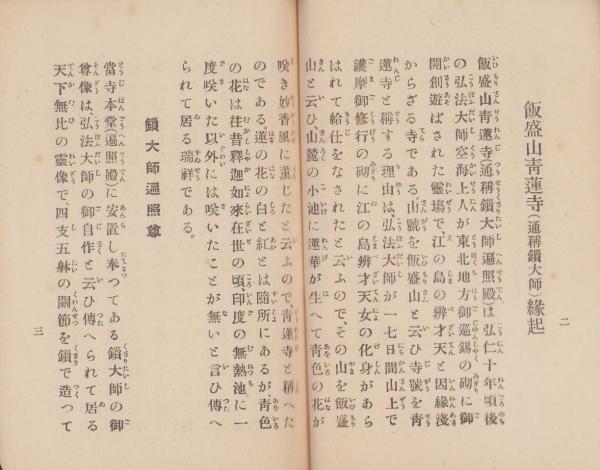 二
飯盛山靑蓮寺(通稱鎖大師)緣起
飯盛山靑蓮寺(通稱鎖大師遍照殿)は弘仁十年頃後
の弘法大師空海上人が東北地方御巡錫の砌に御
開創遊ばされた靈塲で、江の島の辨才天と因緣淺
からざる寺である。山號を飯盛山と云ひ寺號を靑
蓮寺と稱する理由は、弘法大師が一七日間山上で
護摩御修行の砌に江の島辨才天女の化身があら
はれて給仕をなされたと云ふので、その山を飯盛
山と云ひ、山麓の小池に蓮華が生へて靑色の花が
咲き妙香風に薰じたと云ふので、靑蓮寺と稱へた
のである蓮の花の白と紅とは隨所にあるが靑色
の花は往昔釋迦如來在世の頃、印度の無熱池に一
度咲いた以外には咲いたことが無いと言ひ傳へ
られて居る瑞祥である。
鎖大師遍照尊
當寺本堂(遍照殿)に安置し奉つてある鎖大師の御
尊像は弘法大師の御自作と云ひ傳へられて居る
天下無比の靈像で、四支五躰の關節を鎖で造つて
三